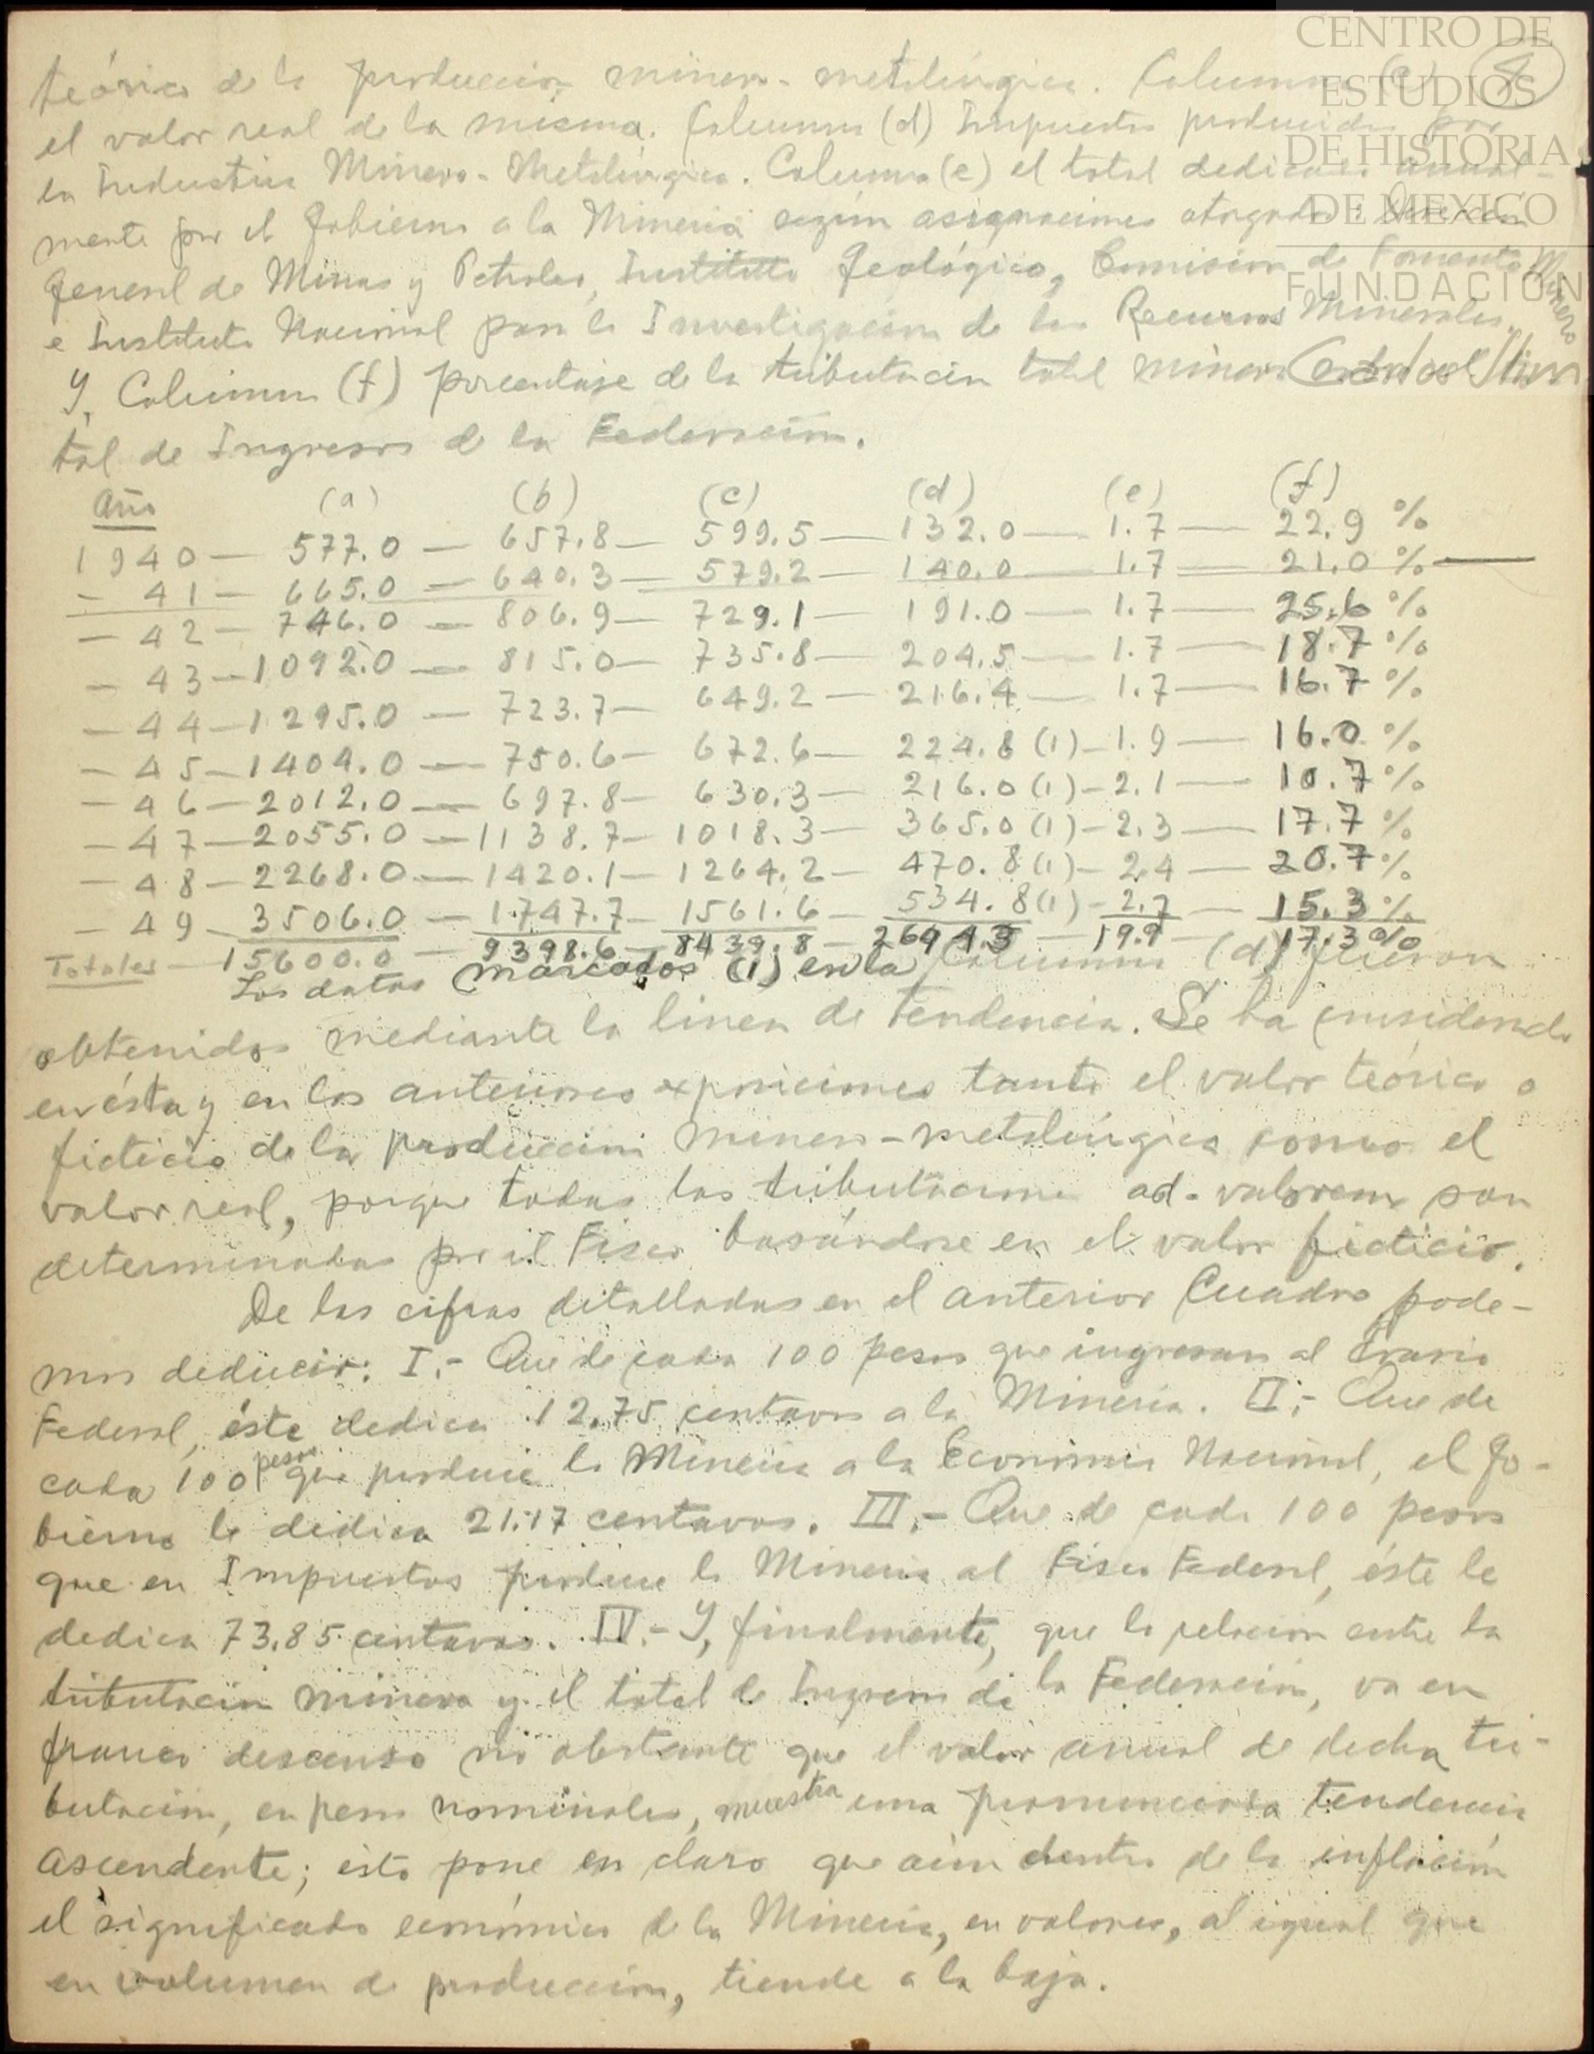 teórico de la producción minero-metalúrgica. Columna (c)
el valor real de la misma. Columna (d) Impuestos producidos por
la Industria Minero-Metalúrgica. Columna (e) el total dedicado anual-
mente por el Gobierno a la Minería según asignaciones otorgadas: Dirección
General de Minas y Petróleo, Instituto Geológico, Comisión de Fomento Minero
e Instituto Nacional para la Investigación de los Recursos Minerales.
Y, Columna (f) porcentaje de la tributación total minera
tal de Ingresos de la Federación.
Año (a) (b) (c) (d) (e) (f)
1940 — 577.0 — 657.8 — 599.5 — 132.0 — 1.7 — 22.9 %
— 41 — 665.0 — 640.3 — 579.2 — 140.0 — 1.7 — 21.0 % —
— 42 — 746.0 — 806.9 — 729.1 — 191.0 — 1.7 — 25.6 %
— 43 — 1092.0 — 815.0 — 735.8 — 204.5 — 1.7 — 18.7 %
— 44 — 1295.0 — 723.7 — 649.2 — 216.4 — 1.7 — 16.7 %
— 45 — 1404.0 — 750.6 — 672.6 — 224.8 (1) — 1.9 — 16.0 %
— 46 — 2012.0 — 697.8 — 630.3 — 216.0 (1) — 2.1 — 10.7 %
— 47 — 2055.0 — 1138.7 — 1018.3 — 365.0 (1) — 2.3 — 17.7 %
— 48 — 2268.0 — 1420.1 — 1264.2 — 470.8 (1) — 2.4 — 20.7 %
— 49 — 3506.0 — 1.747.7 — 1561.6 — 534.8 (1) — 2.7 — 15.3 %
Totales — 15600.0 — 9398.6 — 8439.8 — 2694.3 — 19.9 — 17.3 %
Los datos marcados (1) en la Columna (d) fueron
obtenidos mediante la linea de Tendencia. Se ha considerado
en ésta y en las anteriores exposiciones tanto el valor teórico o
ficticio de la producción minero-metalúrgica como el
valor real, porque todas las tributaciones ad-valorem son
determinadas por el Fisco basándose en el valor ficticio.
De las cifras detalladas en el anterior Cuadro pode-
mos deducir: I.- Que de cada 100 pesos que ingresan al Erario
Federal, éste dedica 12.75 centavos a la Minería. II.- Que de
cada 100 pesos que produce la Minería a la Economía Nacional, el Go-
bierno le dedica 21.17 centavos. III.- Que de cada 100 pesos
que en Impuestos produce la Minería al Fisco Federal, éste le
dedica 73.85 centavos. IV.- Y, finalmente, que la relación entre la
tributación minera y el total de Ingresos de la Federación, va en
franco descenso no obstante que el valor anual de dicha tri-
butación, en pesos nominales, muestra una pronunciada tendencia
ascendente; esto pone en claro que aún dentro de la inflación
el significado económico de la Minería, en valores, al igual que
en volumen de producción, tiende a la baja.
CENTRO DE
ESTUDIOS
DE HISTORIA
DE MEXICO
FUNDACIÓN
Carlos Slim